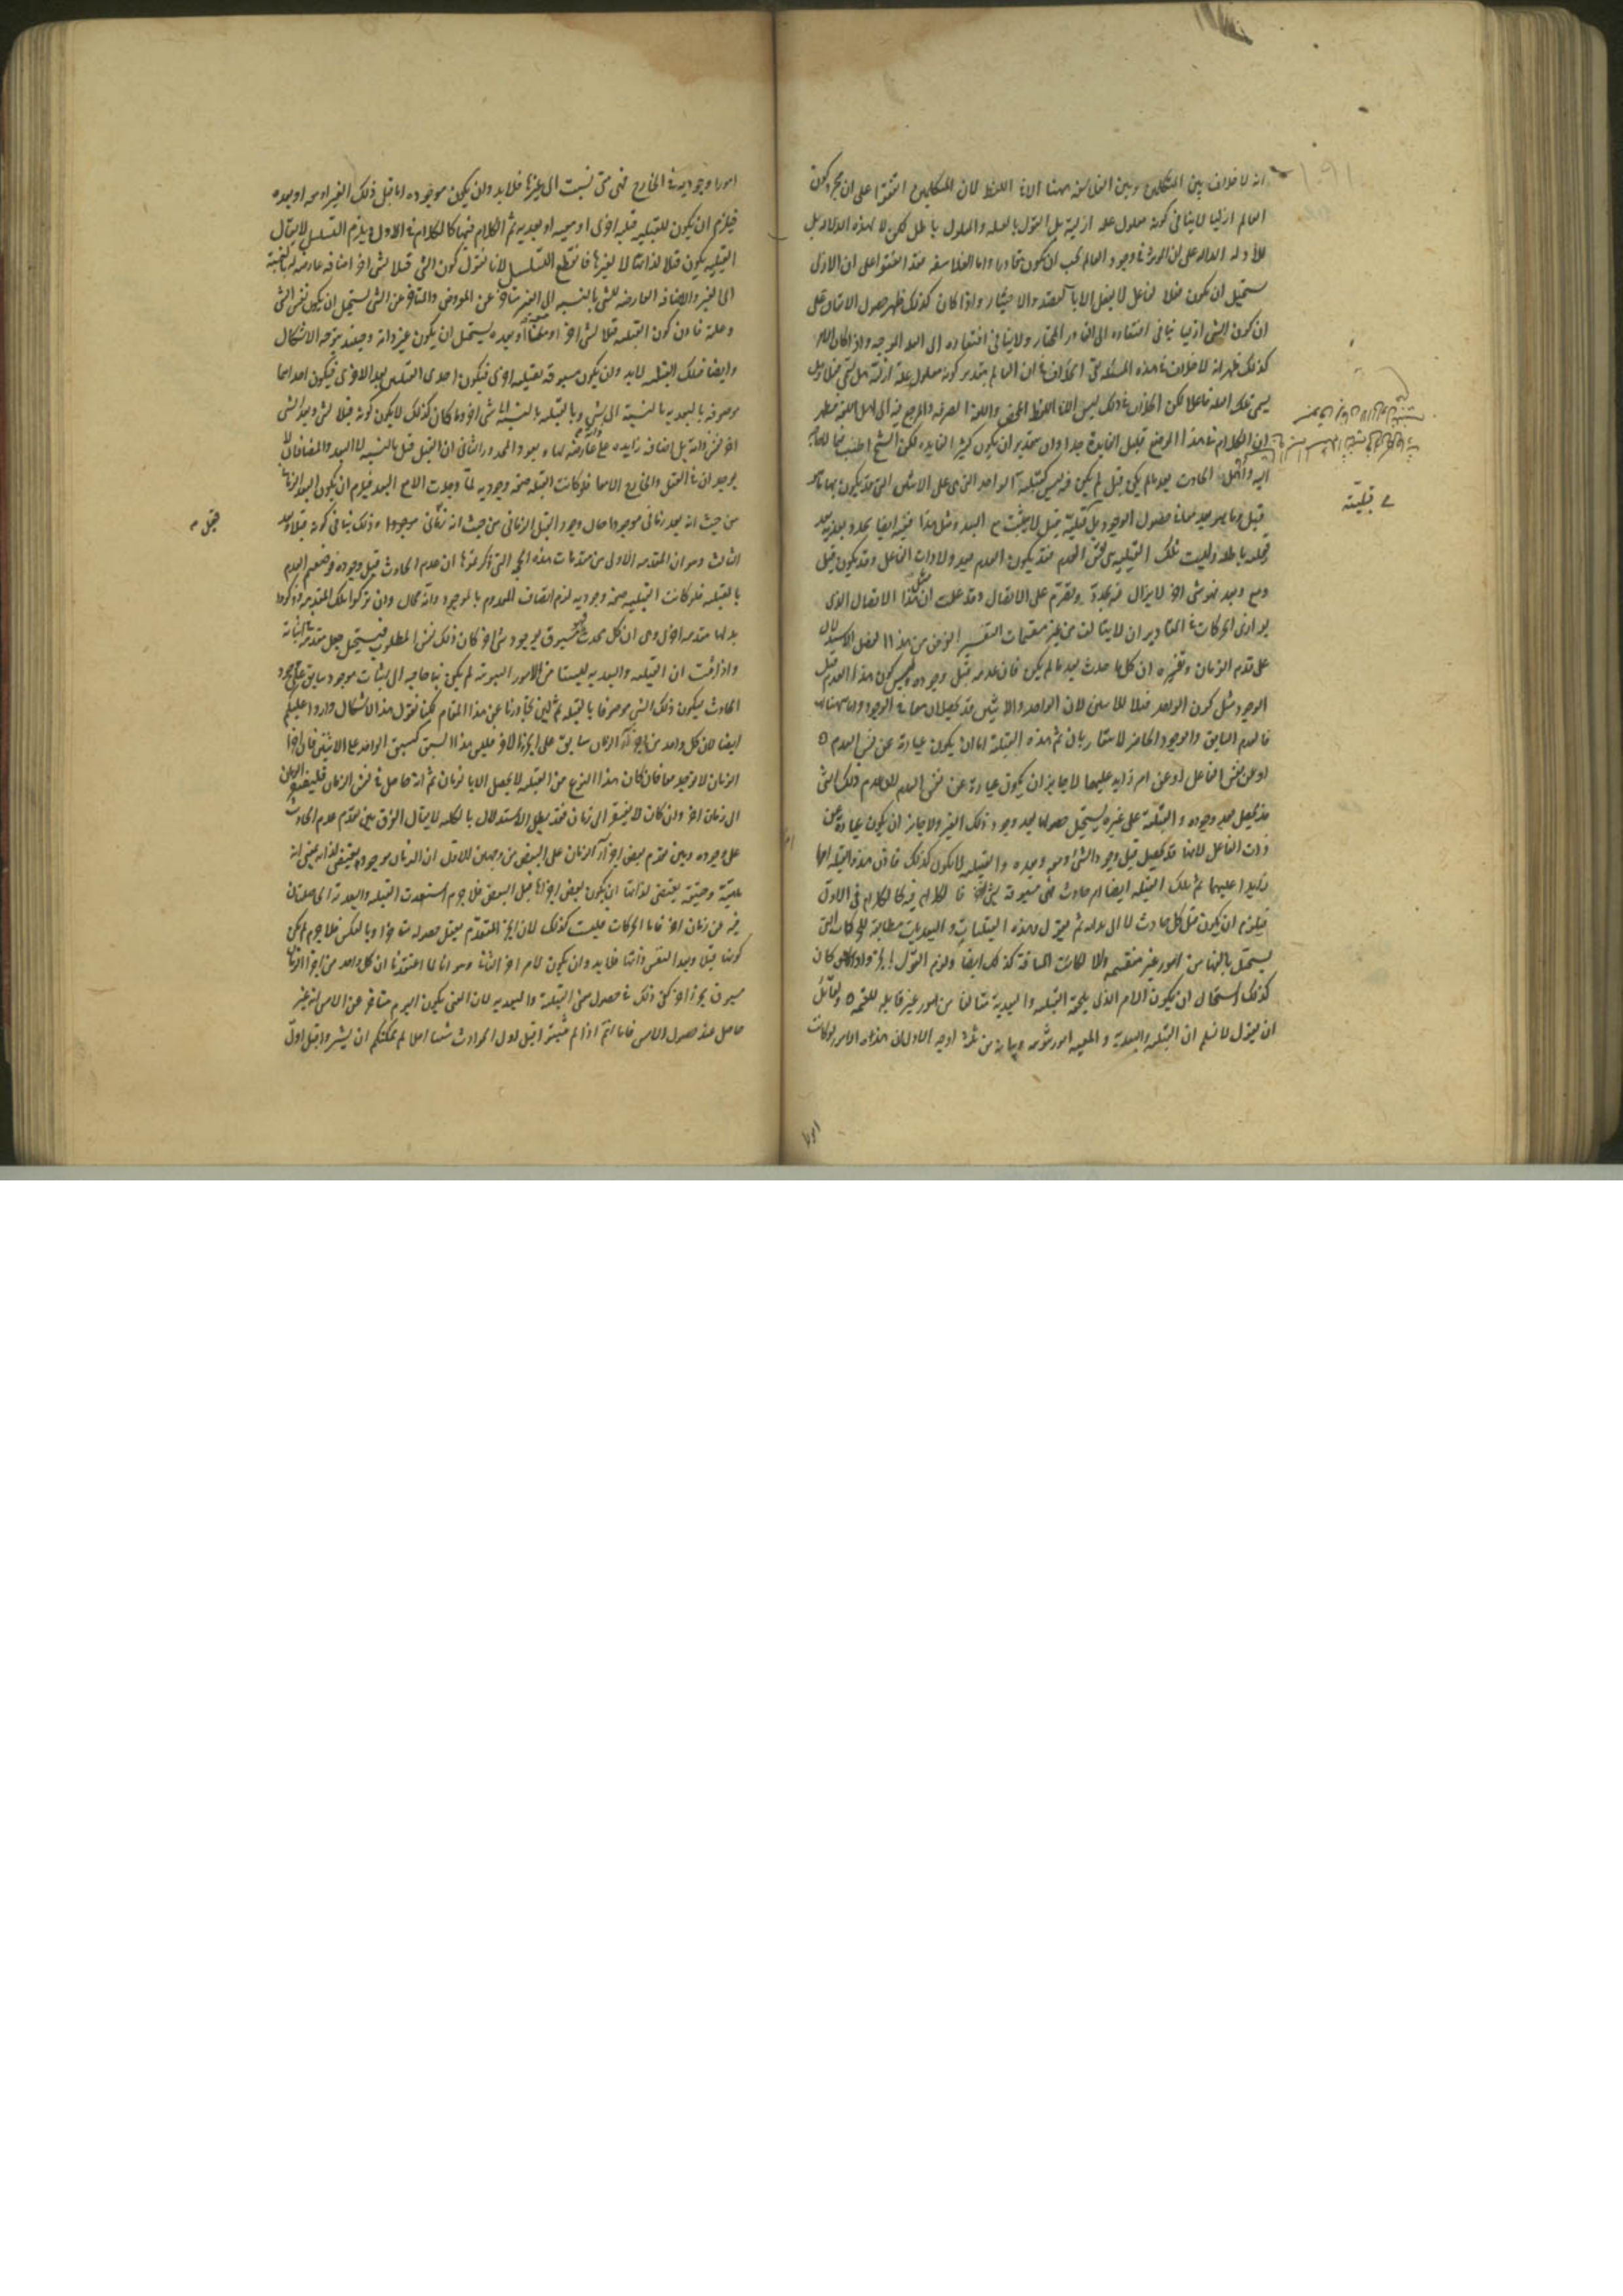 انه لا خلاف بين المتكلمين وبين الفلاسفة ههنا الا في اللفظ لان المتكلمين اتفقوا على ان مجرد كون
العالم ازليا لا ينافى كونه معلول علة ازلية بل القول بالعلة والمعلول باطل لكن لا لهذه الدلالة بل
للأدلة الدالة على ان المؤثر في وجود العالم يجب ان يكون قادرا واما الفلاسفة فقد اتفقوا على ان الازلى
يستحيل ان يكون فعلا لفاعل لا يفعل الا بالقصد والاختيار واذا كان كذلك ظهر حصول الاتفاق على
ان كون الشى ازليا ينافى افتقاره الى القادر المختار ولا ينافى افتقاره الى العلة الموجبة واذا كان الامر
كذلك ظهر انه لا خلاف في هذه المسئلة بقى الخلاف في ان العالم بتقدير كونه معلول علة ازلية هل يسمى فعلا وهل
يسمى تلك العلة فاعلا لكن الخلاف في ذلك ليس الا في اللفظ المحض واللغة الصرفة والمرجع فيه الى اهل اللغة فظهر
ان الكلام في هذا الموضع قليل الفايدة جدا وان بتقدير ان يكون كثير الفايدة لكن الشيخ اطنب
الحادث بعد ما لم يكن قبل لم يكن فيه ليس كقبلية الواحد التى هى على الاثنين التى قد يكون بها ما هو
قبل وما هو بعد معا في حصول الوجود بل قبلية قبل لا يثبت مع البعد ومثل هذا ففيه ايضا تجدد بعدية بعد
قبلية باطلة وليست تلك القبلية هى نفس العدم فقد يكون العدم بعد ولا ذات الفاعل فقد يكون قبل
ومع وبعد فهو شى اخر لا يزال فيه تجدد وتصرم على الاتصال وقد علمت ان مثل هذا الاتصال الذى
يوازى الحركات في المقادير ان لا يتالف من غير منقسمات التفسير الغرض من هذا الفصل الاستدلال
على قدم الزمان وتقريره ان كل ما حدث بعد ما لم يكن فان عدمه قبل وجوده وليس كون هذا العدم قبل
الوجود مثل كون الواحد قبلا للاثنين لان الواحد والاثنين قد يحصلان معا في الوجود واما ههنا
فالعدم السابق والوجود الحاضر لا يتقاربان ثم هذه القبلية اما ان يكون عبارة عن نفس العدم
او عن نفس الفاعل او عن امر زايد عليهما لا جايز ان يكون عبارة عن نفس العدم لان عدم ذلك الشى
قد يحصل بعد وجوده والقبلية على غيره يستحيل حصولها بعد وجود ذلك الغير ولا جايز ان يكون عبارة عن
ذات الفاعل لانها قد تحصل قبل وجود الشى ومعه وبعده والقبلية لا تكون كذلك فاذن هذه القبلية امر
زايد عليهما ثم تلك القبلية ايضا امر حادث فهى مسبوقة بشى اخر فالكلام فيه كالكلام في الاول
فيلزم ان يكون قبل كل حادث لا الى بداية ثم نقول وهذه القبليات والبعديات مطابقة للحركات التى
يستحيل تالفها من امور غير منقسمة والا لكانت المسافة كذلك ايضا ولزم القول واذا كان
كذلك استحال ان يكون الامر الذى يلحقه القبلية والبعدية متالفا من امور غير قابلة للقسمة ولقائل
ان يقول لا نسلم ان القبلية والبعدية والمعية امور ثبوتية وبيانه من ثلثة اوجه الاول ان هذه الامور لو كانت
قبلية
امورا وجودية في الخارج فهى متى نسبت الى غيرها فلا بد وان يكون موجوده اما قبل ذلك الغير او معه او بعده
فيلزم ان يكون للقبلية قبلية اخرى او معية او بعدية ثم الكلام فيها كالكلام في الاول ويلزم التسلسل لا يقال
القبلية يكون قبلا لذاتها لا لغيرها فانقطع التسلسل لانا نقول كون الشى قبلا لشى اخر اضافة عارضة له بالنسبة
الى الغير والاضافة العارضة للشى بالنسبة الى الغير متاخرة عن المعروض والمتاخر عن الشى يستحيل ان يكون نفس الشى
وعلته فاذن كون القبلية قبلا لشى اخر او معه او بعده يستحيل ان يكون عين ذاته وحينئذ يتوجه الاشكال
وايضا فتلك القبلية لا بد وان يكون مسبوقة بقبلية اخرى فيكون احدى القبليتين بعد الاخرى فيكون احداهما
موصوفة بالبعدية بالنسبة الى شى وبالقبلية بالنسبة الى شى اخر وما كان كذلك لا يكون كونه قبلا لشى وبعدا لشى
اخر نفس ذاته بل اضافة زايدة عارضة لها ويعود المحذور الثانى ان القبل قبل بالنسبة الى البعد والمضافان لا
يوجدان في العقل والخارج الا معا فلو كانت القبلية صفة وجودية لما وجدت الا مع البعد فيلزم ان يكون البعد الزمانى
من حيث انه بعد زمانى موجودا حال وجود القبل الزمانى من حيث انه زمانى موجودا وذلك ينافى كونه قبلا وبعد
الثالث وهو ان المقدمة الاولى من مقدمات هذه الحجة التى ذكرتموها ان عدم الحادث قبل وجوده فوصفتم العدم
بالقبلية فلو كانت القبلية صفة وجودية لزم اتصاف المعدوم بالموجود وانه محال وان تركوا تلك المقدمة وذكروا
بدلها مقدمة اخرى وهى ان كل محدث فهو مسبوق بوجود شى اخر كان ذلك نفس المطلوب فيستحيل جعله مقدمة في اثباته
واذا ثبت ان القبلية والبعدية ليستا من الامور الثبوتية لم يكن بنا حاجة الى اثبات موجود سابق على وجود
الحادث ليكون ذلك الشى موصوفا بالقبلية ثم لئن تجاوزنا عن هذا المقام لكنا نقول هذا الاشكال وارد عليكم
ايضا لان كل واحد من اجزآء الزمان سابق على الجزء الاخر فليس هذا السبق كسبق الواحد على الاثنين فان اجزا
الزمان لا توجد معا فان كان هذا النوع من القبلية لا يحصل الا بالزمان ثم انه حاصل في نفس الزمان فليفتقر الزمان
الى زمان اخر وان كان لا يفتقر الى زمان فقد بطل الاستدلال بالكلية لا يقال الفرق بين تقدم عدم الحادث
على وجوده وبين تقدم بعض اجزآء الزمان على البعض من وجهين الاول ان الزمان موجود يقتضى لذاته بمعنى انه
ماهيته وحقيقته يقتضى لذاتها ان يكون بعض اجزائها قبل البعض فلا جرم استغنت القبلية والبعدية اى
فيه عن زمان اخر فاما الحركات فليست كذلك لان الجزء المتقدم يعقل حصوله متاخرا وبالعكس فلا جرم لم يكن
كونها قبلا وبعدا لنفس ذاتها فلا بد وان يكون لامر اخر الثانى وهو انا لما اعتقدنا ان كل واحد من اجزا الزمان
مسبوق بجزء اخر كفى ذلك في حصول معنى القبلية والبعدية لان المعنى بكون اليوم متاخر عن الامس انه غير
حاصل عند حصول الامس فاما انتم اذا لم تثبتوا قبل اول الحوادث شيئا اصلا لم يمكنكم ان يشيروا قبل اول
قبل